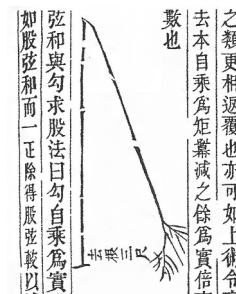 之類更相返覆也亦可如上術令
去本自乘爲矩羃減之餘爲實倍
數也
去根三尺
弦和與勾求股法曰勾自乘爲實
如股弦和而一正除得股弦較以